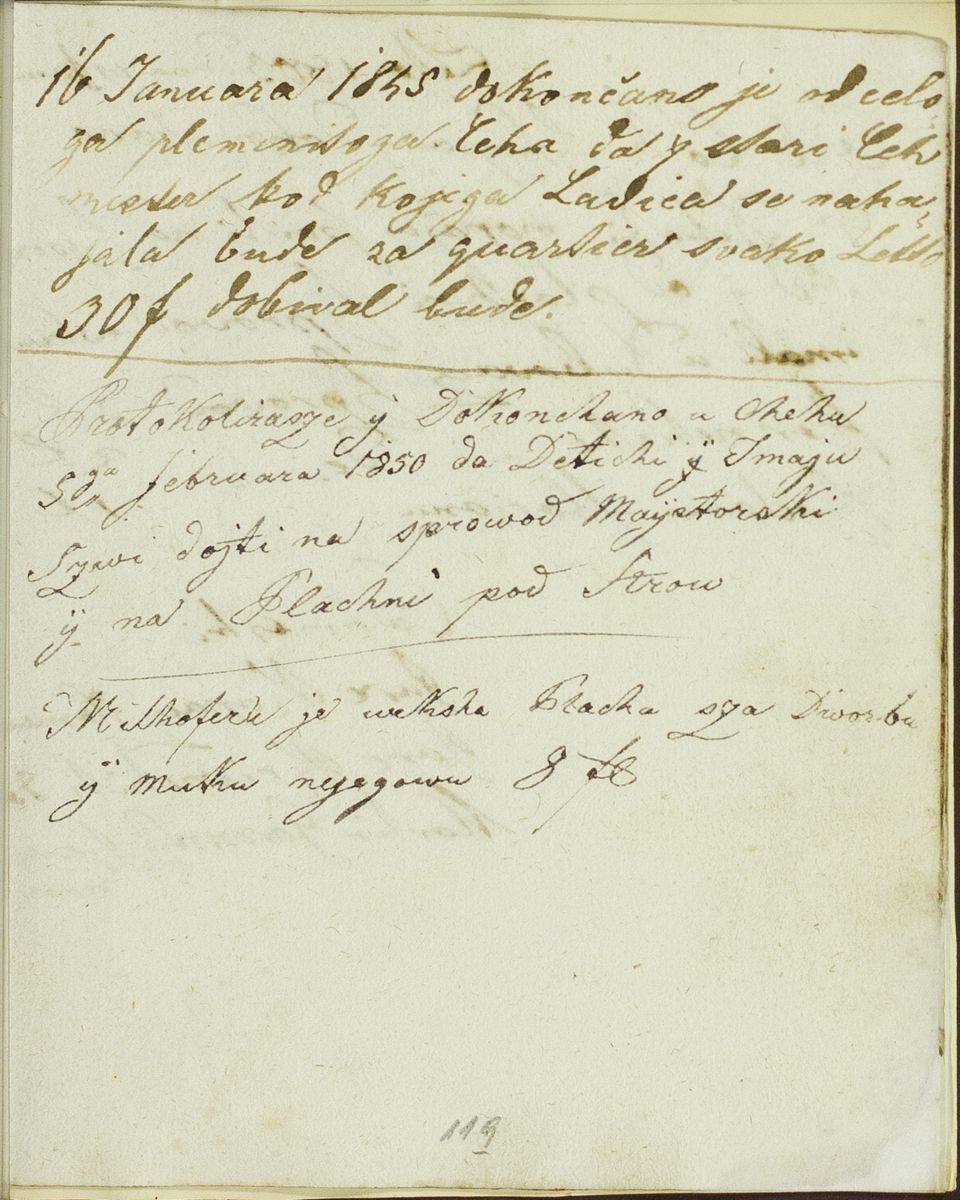 16 Januara 1848 dokončano je od celo-
ga plemenitoga Ceha da y stari Ceh
mester kod kojega Ladica se naha-
jala bude za quartier svako Letto
30 f dobival bude.
Protokolirasze ÿ Dokonchano u Chehu
5ga februara 1850 da Detichi ÿ Imaju
Szwi dojti na sprowod Maystorski
ÿ na Plachni pod Strou
Milhoferu je weksha Placha sza Dworbu
ÿ muku nyegowu 8 f
119